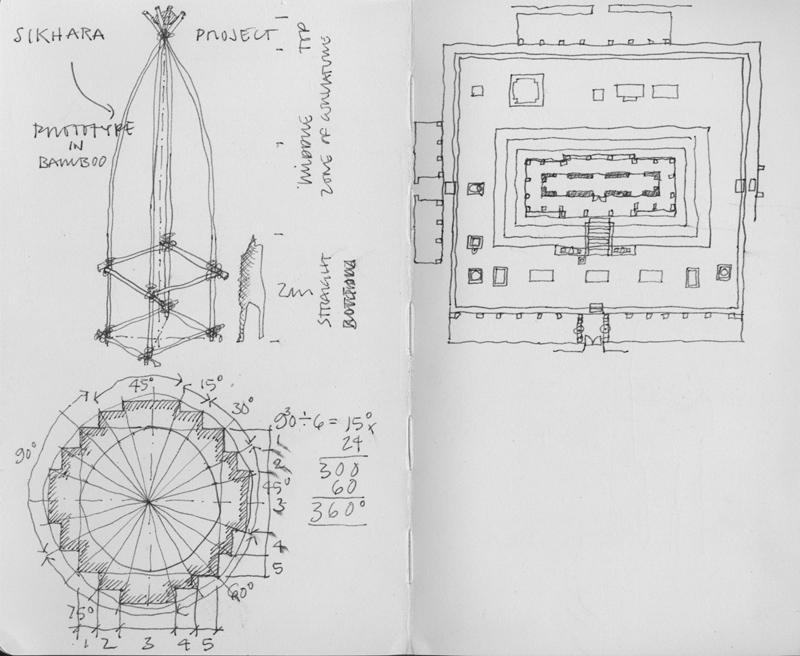 SIKHARA PROJECT
PROTOTYPE
IN
BAMBOO
TIP
MIDDLE
ZONE OF CURVATURE
2m
STRAIGHT
45°
15°
30°
90°
90° ÷ 6 = 15°
x
24
300
60
360°
1
2
45°
3
4
5
60°
75°
1 2 3 4 5